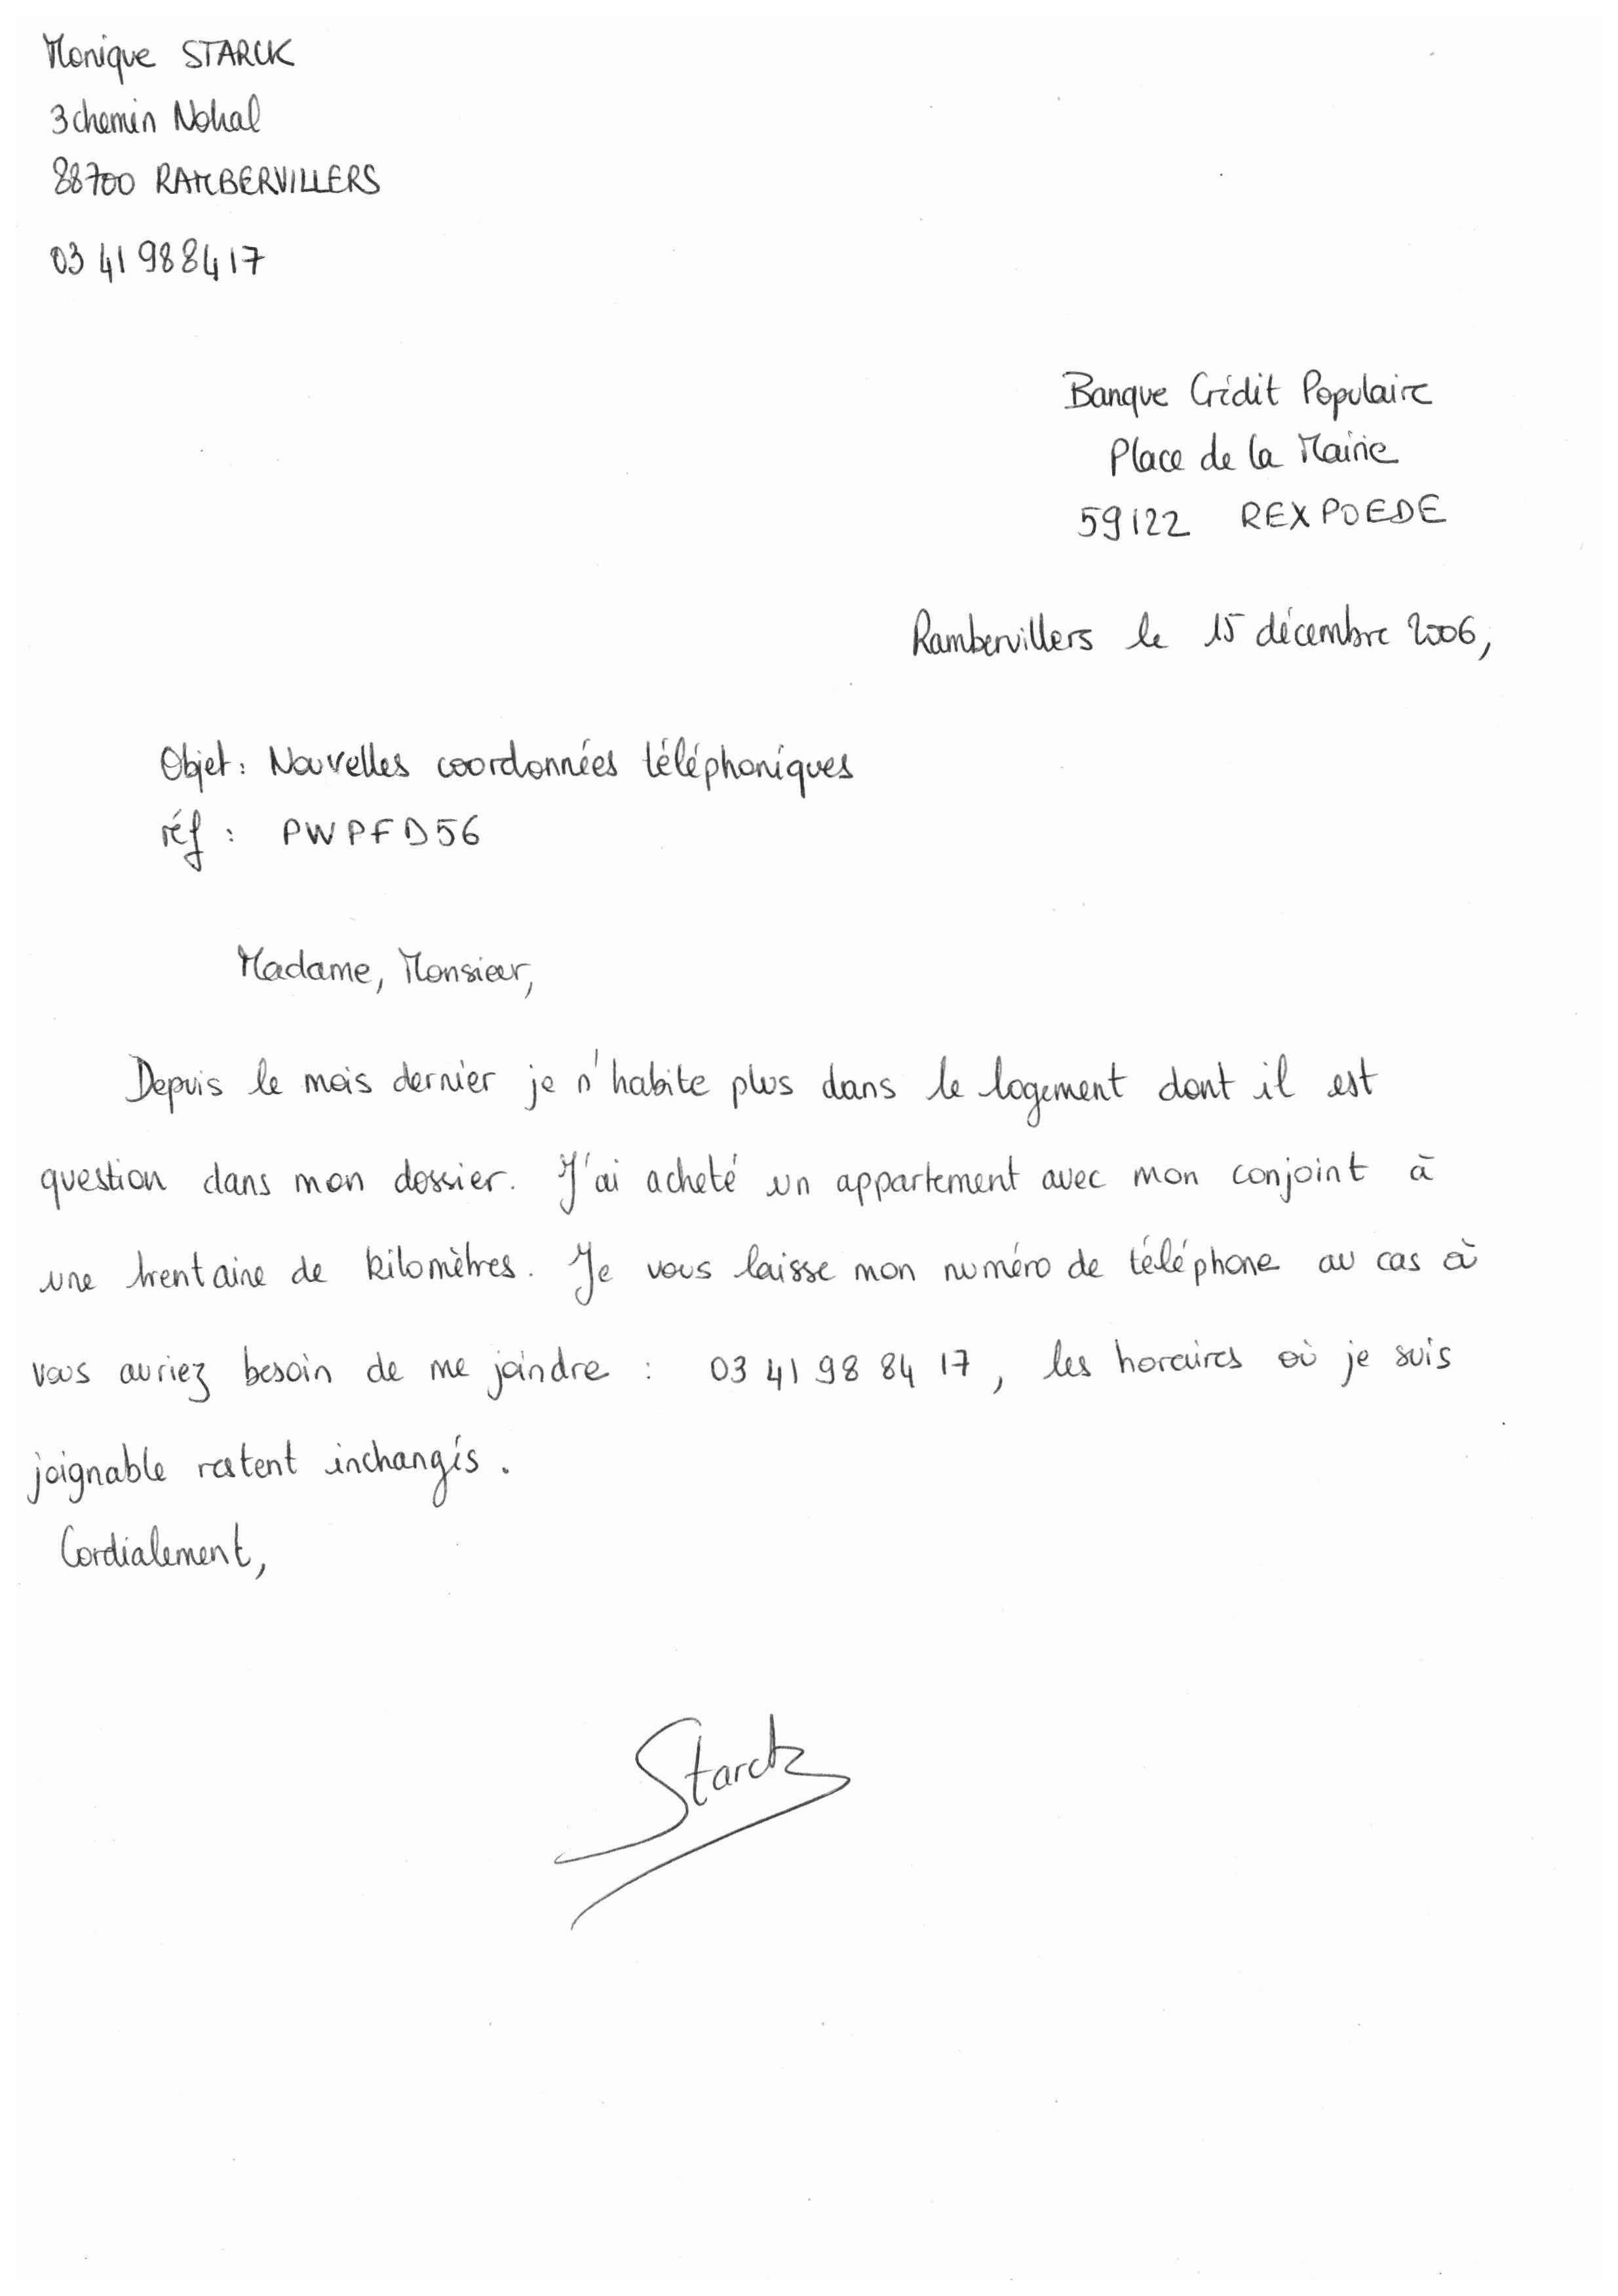 Monique STARCK
3 chemin Nohal
88700 RAMBERVILLERS
03 41 98 84 17
Banque Crédit Populaire
Place de la Mairie
59122 REXPOEDE
Rambervillers le 15 décembre 2006,
Objet : Nouvelles coordonnées téléphoniques
réf : PWPFD56
Madame, Monsieur,
Depuis le mois dernier je n'habite plus dans le logement dont il est
question dans mon dossier. J'ai acheté un appartement avec mon conjoint à
une trentaine de kilomètres. Je vous laisse mon numéro de téléphone au cas où
vous auriez besoin de me joindre : 03 41 98 84 17, les horaires où je suis
joignable restent inchangés.
Cordialement,
Starck